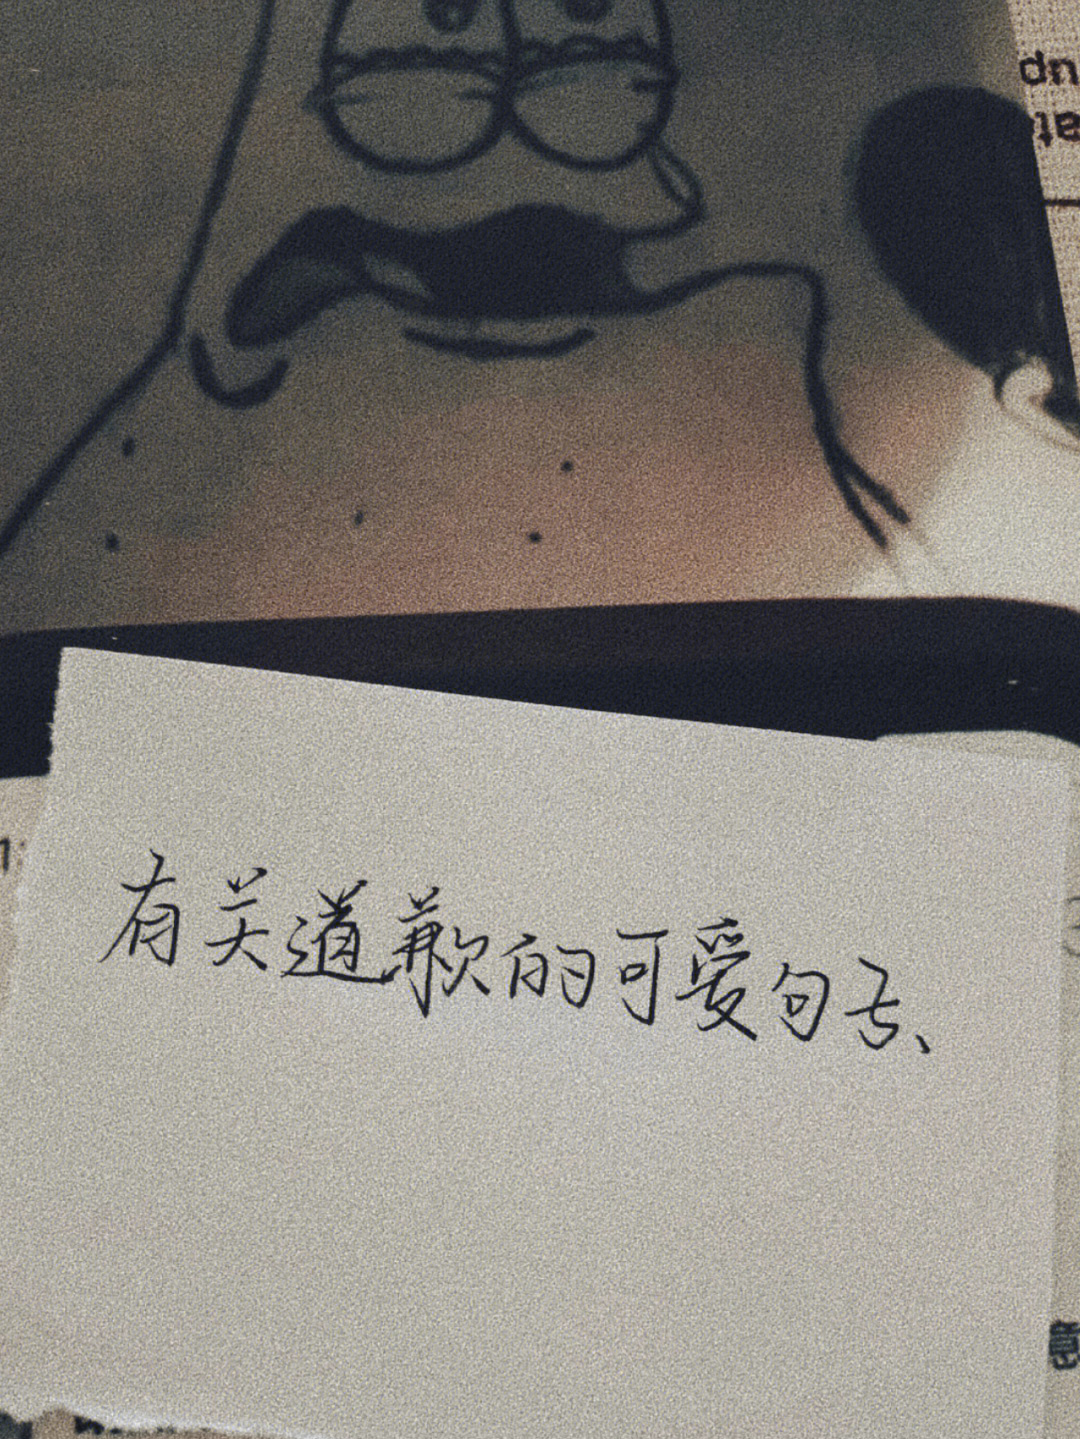 dn
有关道歉的可爱句子、
意